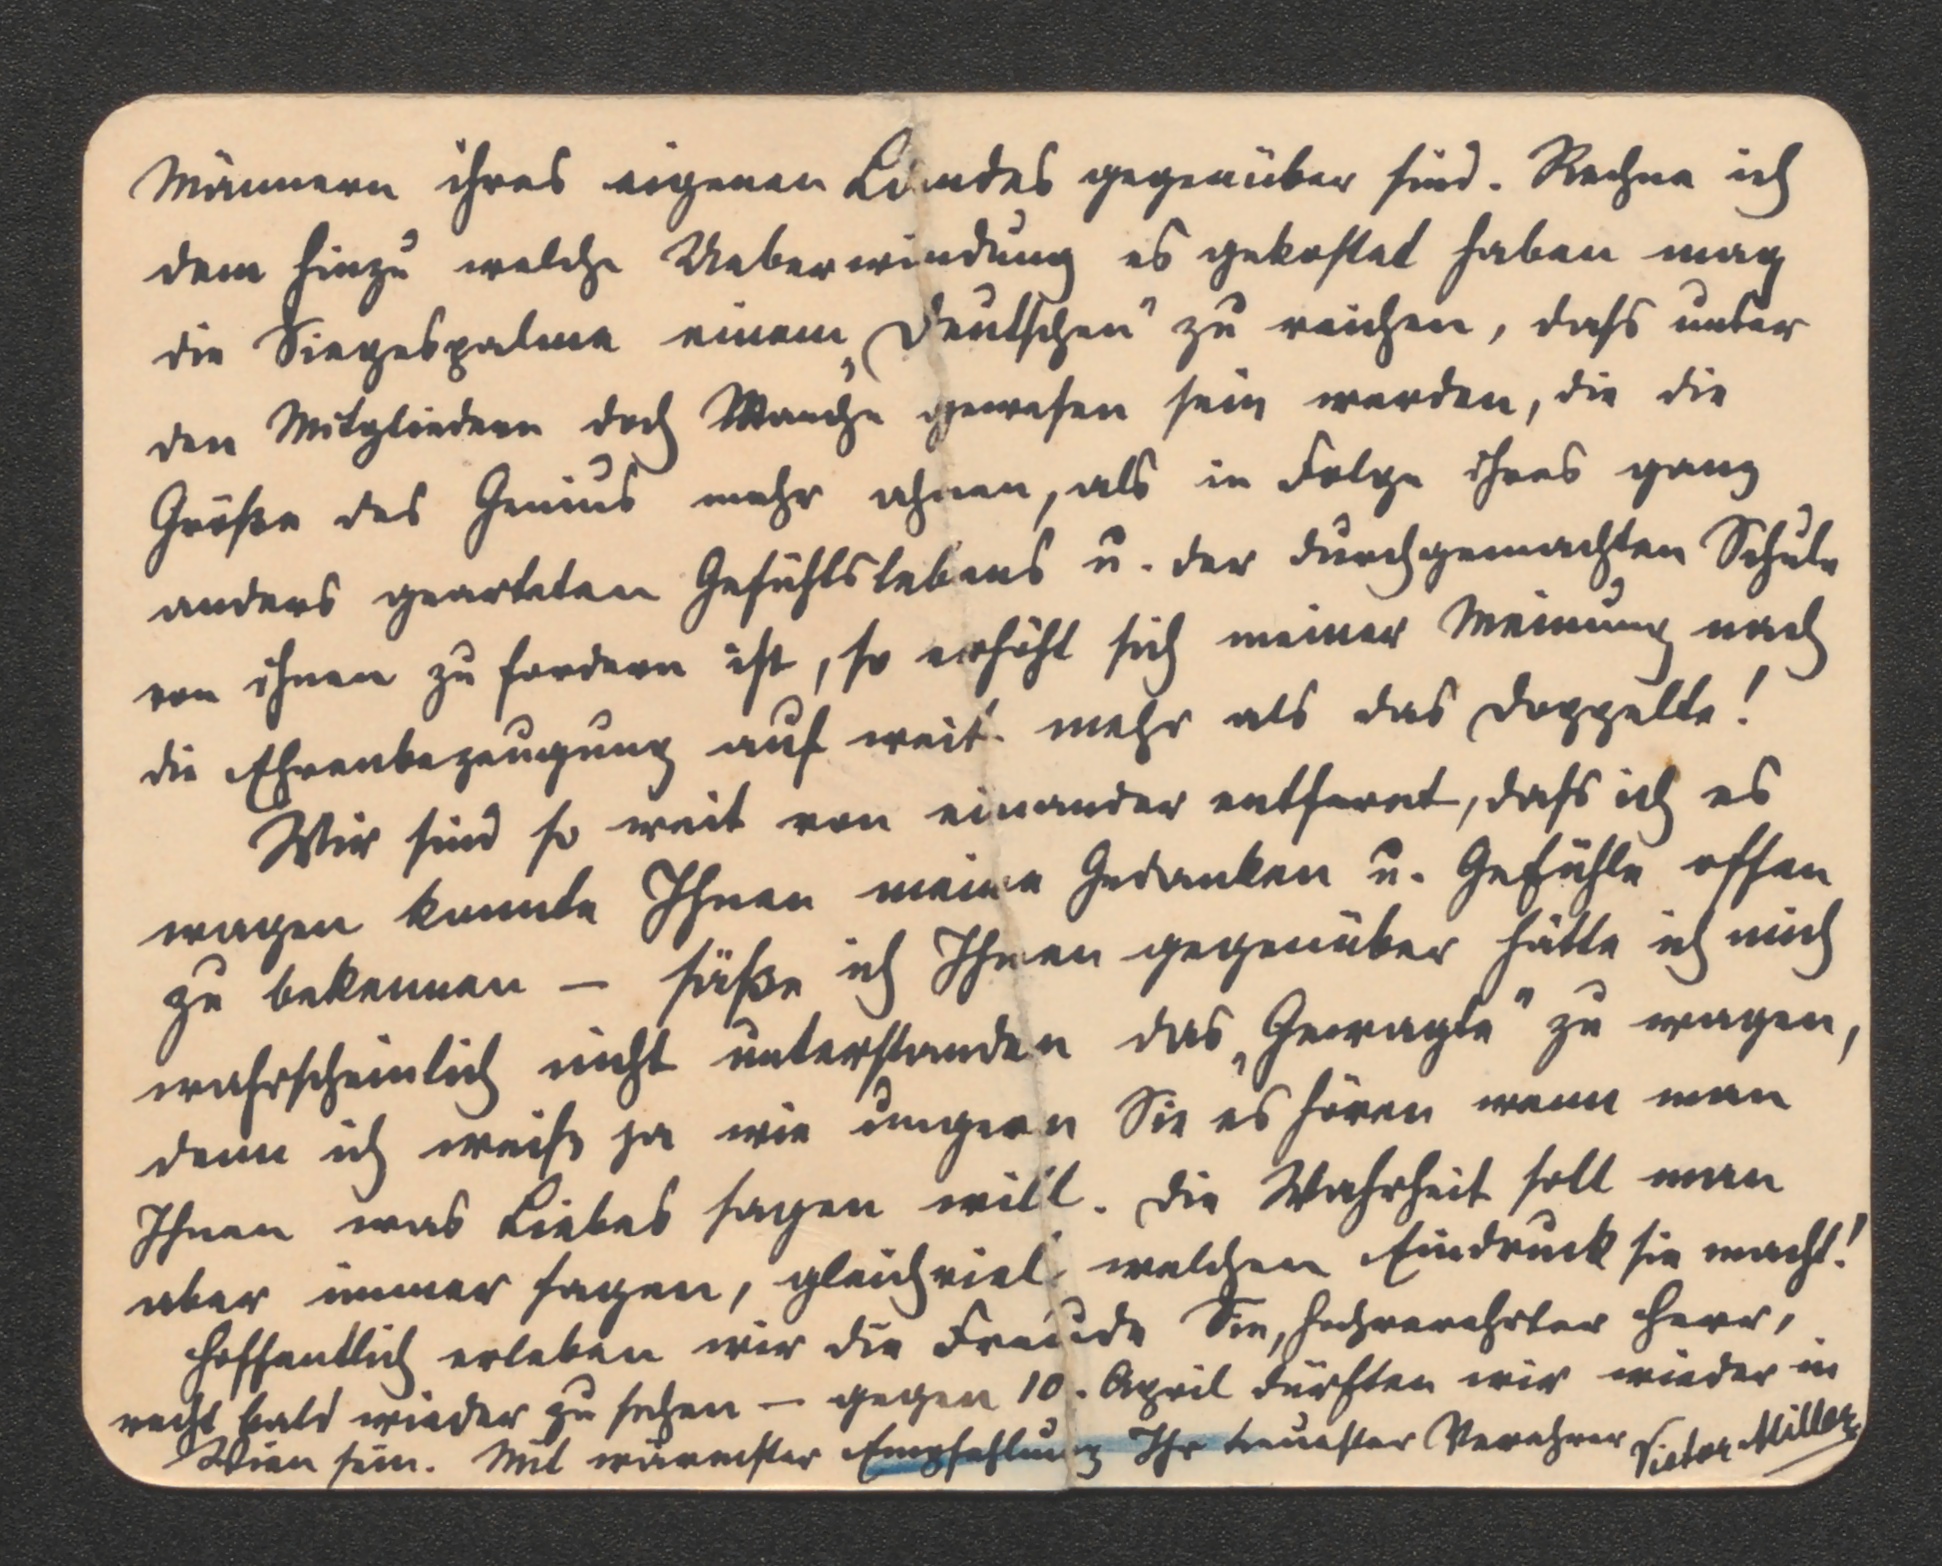 Männern ihres eigenen Landes gegenüber sind. Rechne ich
dem hinzu welche Ueberwindung es gekostet haben mag
die Siegespalme einem „Deutschen" zu reichen, dass unter
den Mitgliedern doch Manche gewesen sein werden, die die
Größe des Genius mehr ahnen, als in Folge ihres ganz
anders gearteten Gefühlslebens u. der durchgemachten Schule
von ihnen zu fordern ist, so erhöht sich meiner Meinung nach
die Ehrenbezeugung auf weit mehr als das Doppelte!
Wir sind so weit von einander entfernt, dass ich es
wagen konnte Ihnen meine Gedanken u. Gefühle offen
zu bekennen – säße ich Ihnen gegenüber hätte ich mich
wahrscheinlich nicht unterstanden das „Gewagte" zu wagen,
denn ich weiß ja wie ungern Sie es hören wenn man
Ihnen was Liebes sagen will. Die Wahrheit soll man
aber immer sagen, gleichviel welchen Eindruck sie macht!
Hoffentlich erleben wir die Freude Sie, hochverehrter Herr,
recht bald wieder zu sehen – gegen 10. April dürften wir wieder in
Wien sein. Mit wärmster Empfehlung Ihr treuester Verehrer Victor Miller